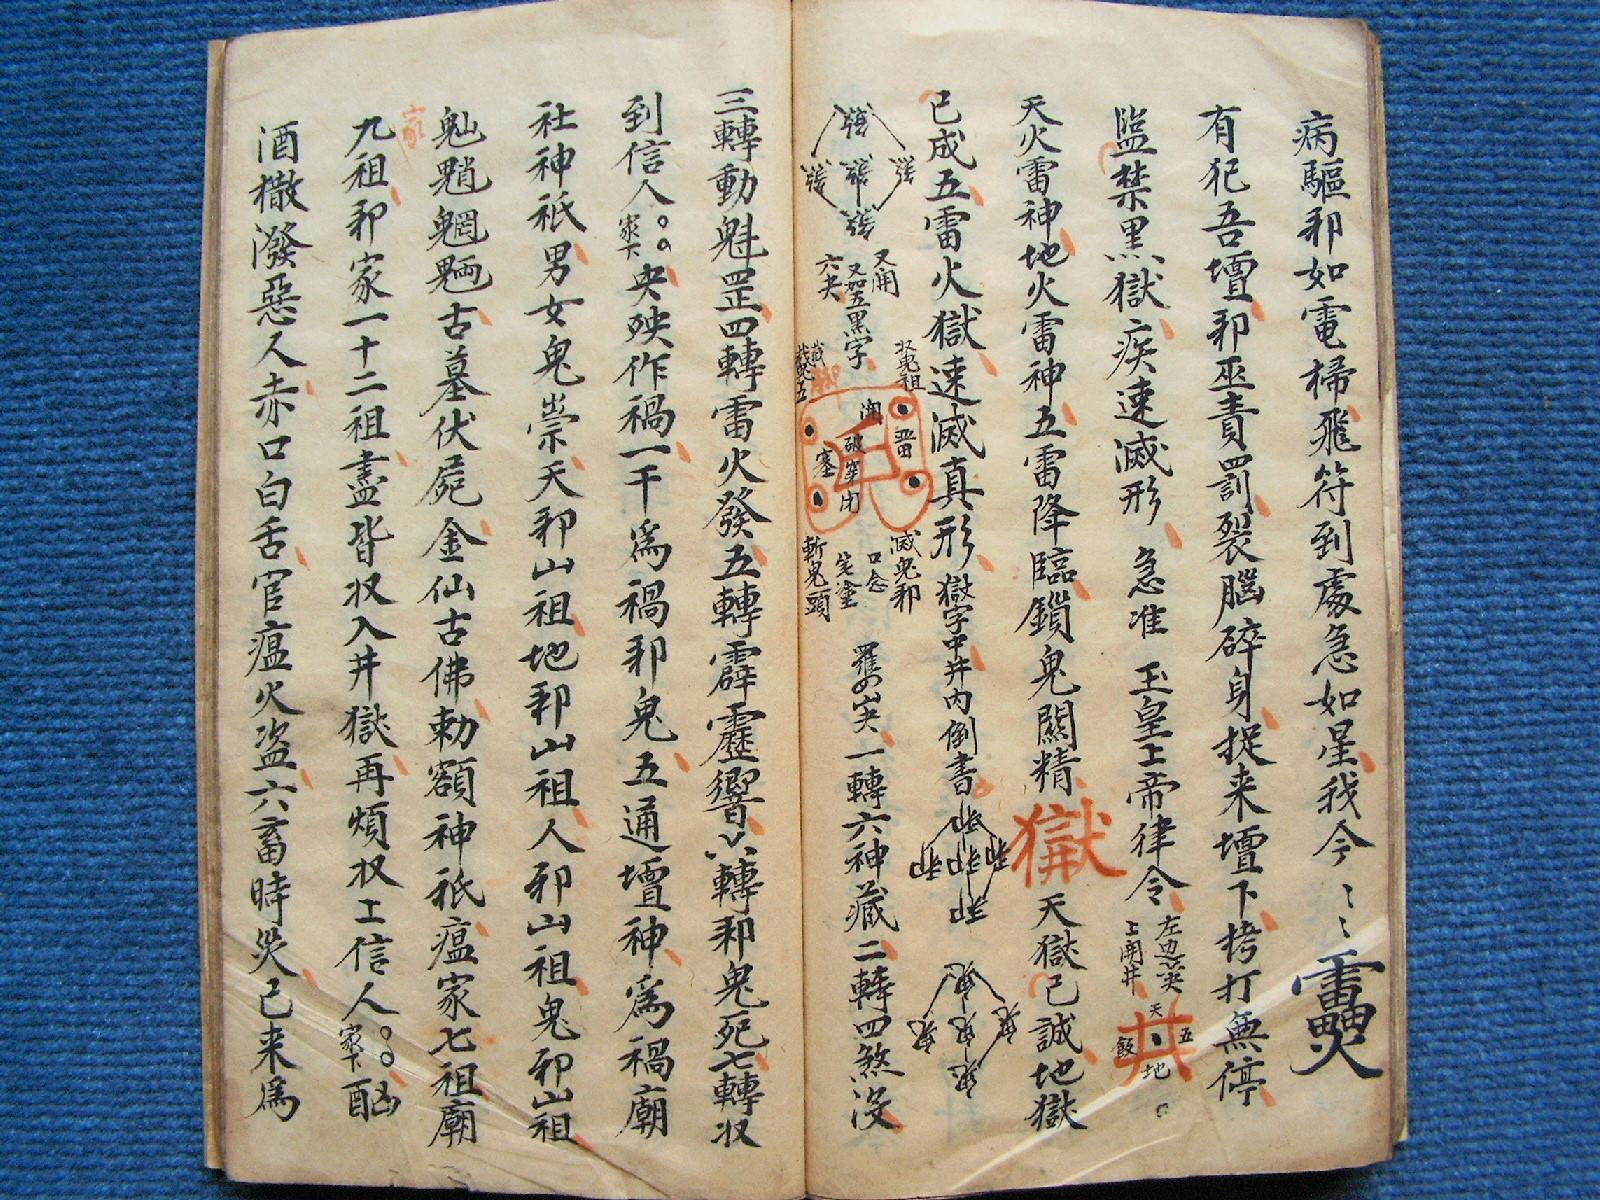 病驅邪如電掃飛符到處急如星我今〻〻
有犯吾壇邪巫責罰裂腦碎身捉来壇下拷打無停
監禁黑獄疾速滅形 急准 玉皇上帝律令
上開井
天
五
地
天火雷神地火雷神五雷降臨鎖鬼關精 獄 天獄已誠地獄
已成五雷火獄速滅真形獄字中井内倒書
又開
又加五黑字
六央
収鬼祖
滅鬼邪
口念
斬鬼頭
一轉六神藏二轉四煞没
三轉動魁罡四轉雷火發五轉霹靂響六轉邪鬼死七轉収
到信人家下央殃作禍一千為禍邪鬼五通壇神為禍廟
社神祇男女鬼崇天邪山祖地邪山祖人邪山祖鬼邪山祖
古墓伏屍金仙古佛勅額神祇瘟家七祖廟
家
九祖邪家一十二祖盡皆収入井獄再煩収士信人家下
酒撒潑惡人赤口白舌官瘟火盗六畜時災已来為